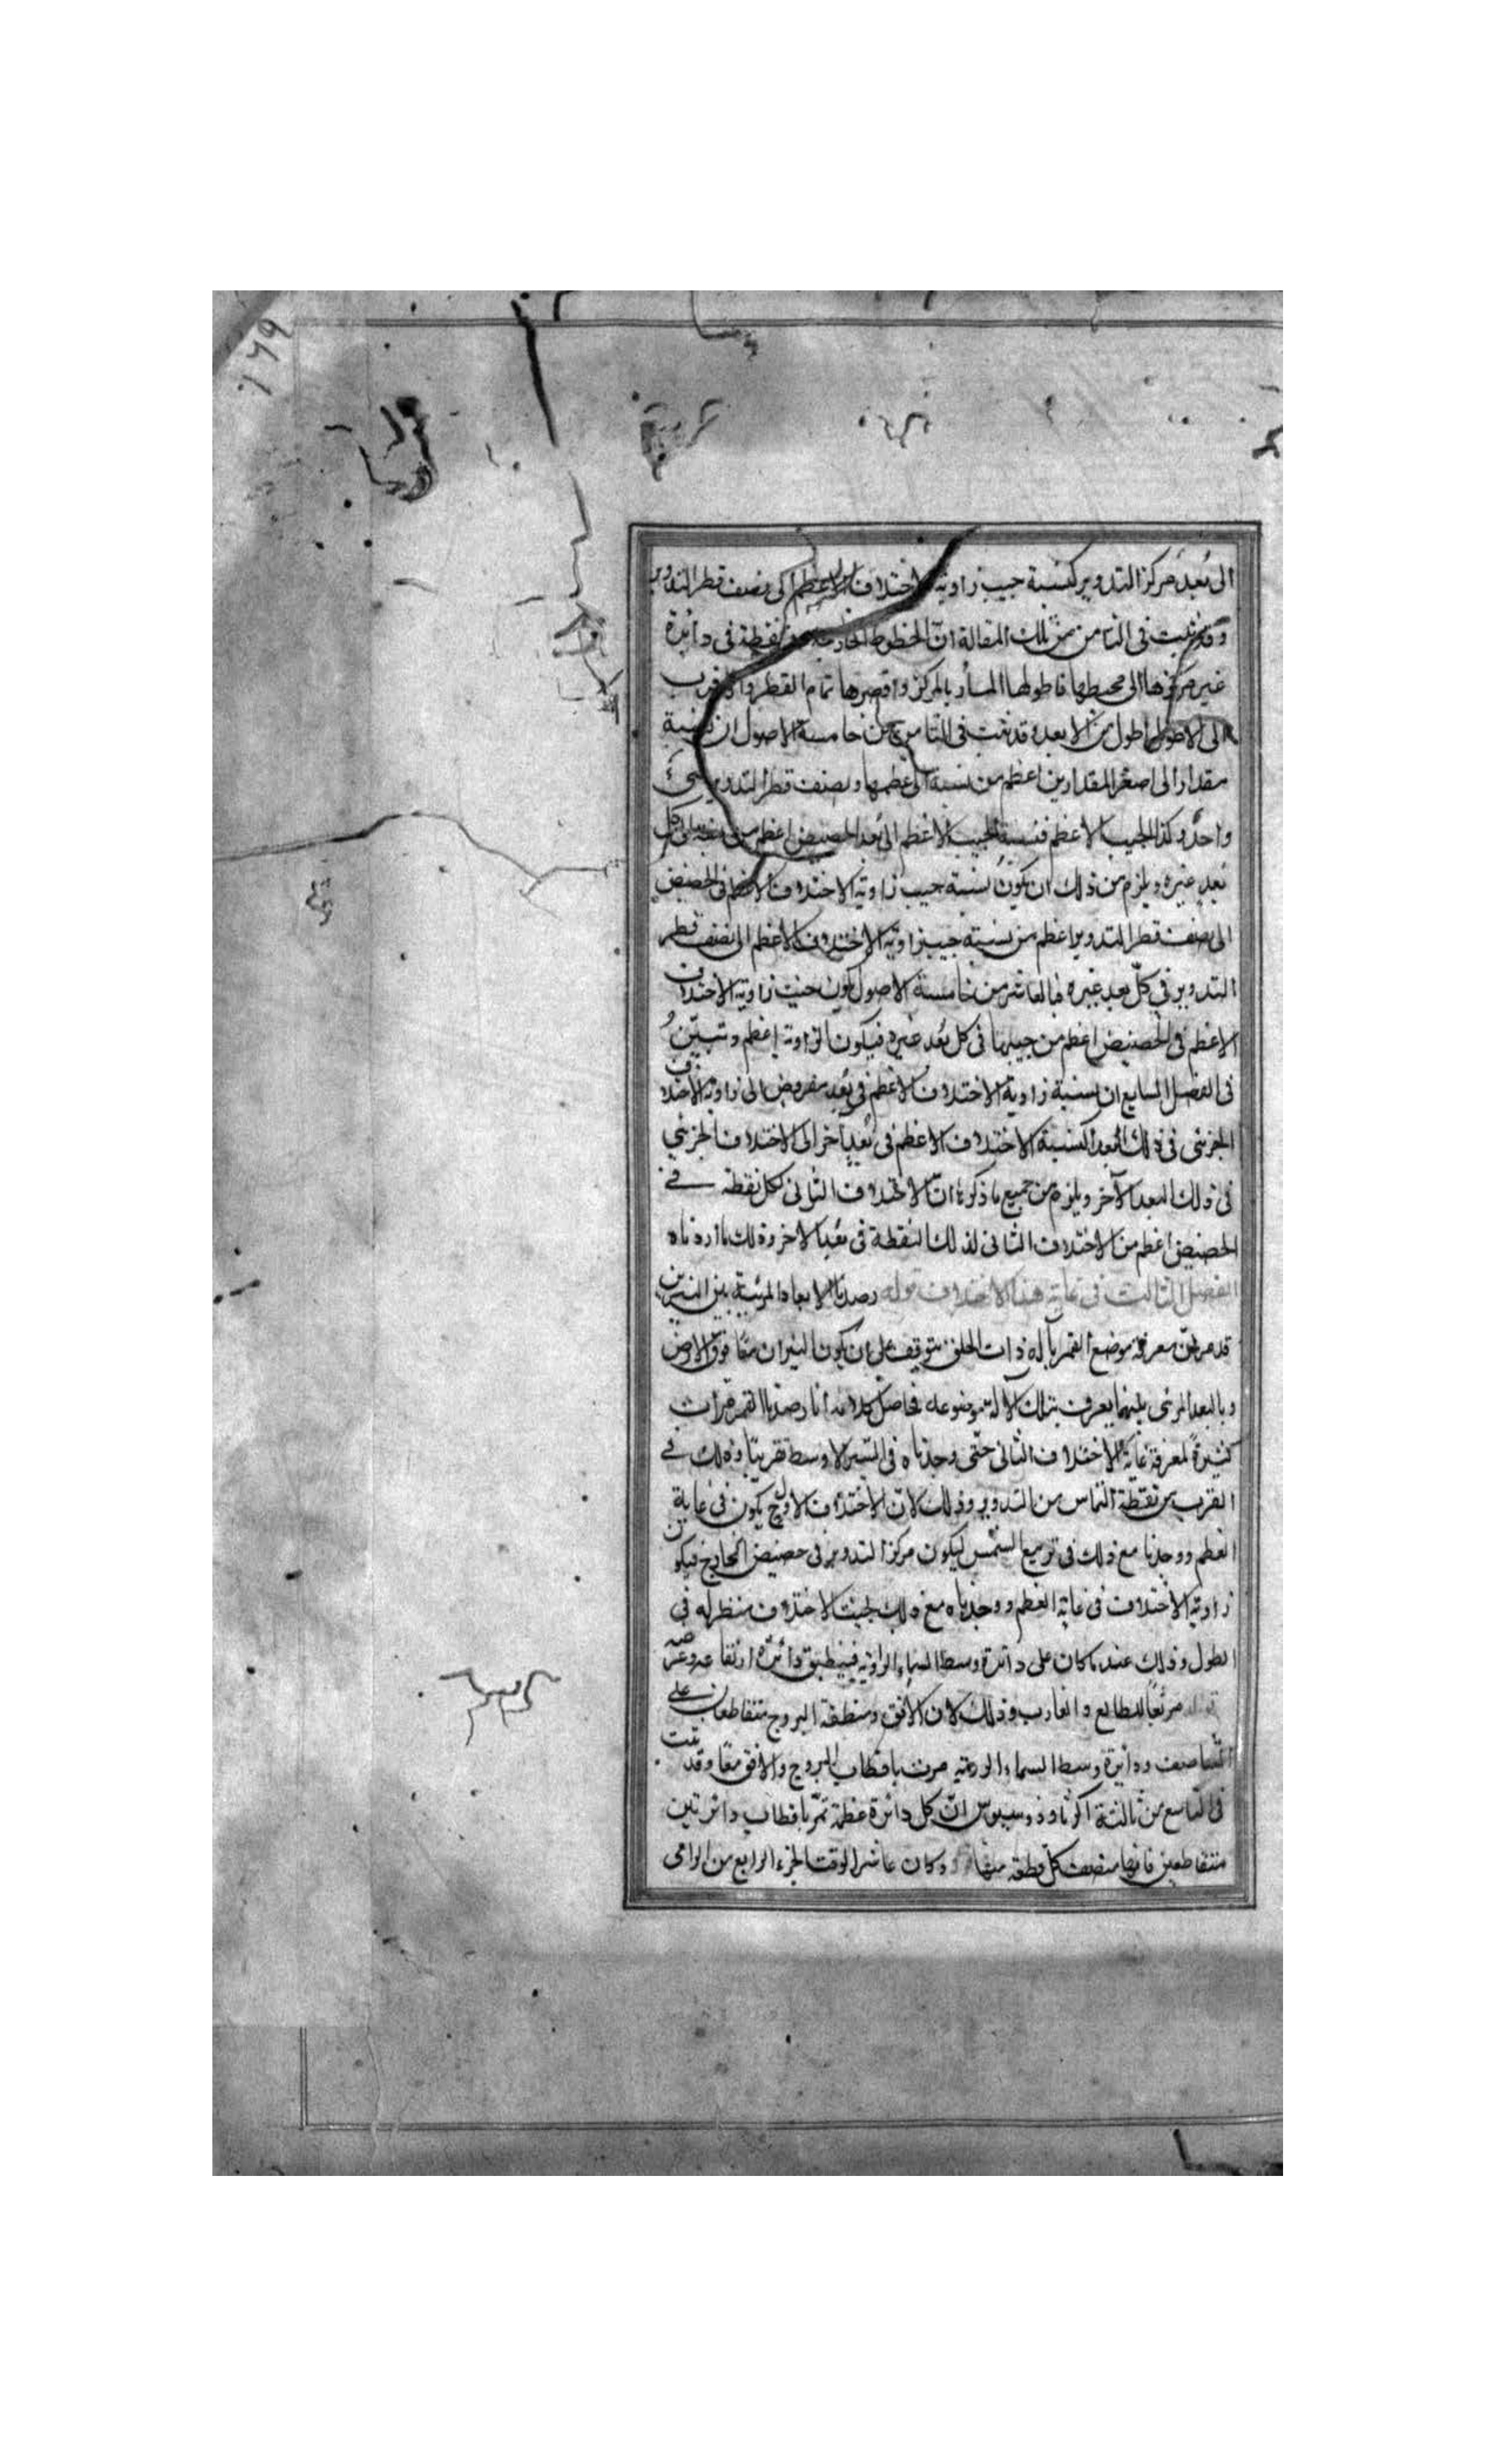 ١٦٩
الى بُعد مركز التدوير كنسبة جيب زاوية الاختلاف الاعظم الى نصف قطر التدوير
وقد ثبت فى الثامن من تلك المقالة انّ الخطوط الخارجة من نقطة فى دائرة
غير مركزها الى محيطها فاطولها المار بالمركز واقصرها تمام القطر والاقرب
الى الاطول اطول من الابعد وقد ثبت فى الثامن من خامسة الاصول ان نسبة
مقدار الى اصغر المقدارين اعظم من نسبة الى اعظمها ونصف قطر التدوير شىء
واحد وكذا الجيب الاعظم فنسبة الجيب الاعظم الى بُعد الحضيض اعظم من نسبته الى كل
بُعد غيره ويلزم من ذلك ان يكون نسبة جيب زاوية الاختلاف الاعظم فى الحضيض
الى نصف قطر التدوير اعظم من نسبة جيب زاوية الاختلاف الاعظم الى نصف قطر
التدوير فى كلّ بعد غيره فبالعاشر من خامسة الاصول يكون جيب زاوية الاختلاف
الاعظم فى الحضيض اعظم من جيبها فى كل بُعد غيره فيكون الزاوية اعظم وتبيّن
فى الفصل السابع ان نسبة زاوية الاختلاف الاعظم فى بُعد مفروض الى زاوية الاختلاف
الجزئى فى ذلك البعد كنسبة الاختلاف الاعظم فى بُعد آخر الى الاختلاف الجزئي
فى ذلك البعد الآخر ويلزم من جميع ما ذكرنا انّ الاختلاف الثانى لكل نقطة فى
الحضيض اعظم من الاختلاف الثانى لذلك النقطة فى بُعد آخر وذلك ما اردناه
الفصل الثالث فى غاية هذا الاختلاف قوله رصدنا الابعاد المرئية بين النيرين
قد مر انّ معرفة موضع القمر بآلة ذات الحلق يتوقف على ان يكون النيران معًا فوق الارض
وبالبعد المرئى بينهما يعرف بتلك الآلة موضوعه فحاصل كلامه انا رصدنا القمر مرات
كثيرةً لمعرفة غاية الاختلاف الثانى حتّى وجدناه فى السير الاوسط تقريبًا وذلك فى
القرب من نقطة التماس من التدوير وذلك لانّ الاختلاف الاول ح يكون فى غاية
العظم ووجدنا مع ذلك فى تربيع الشمس ليكون مركز التدوير فى حضيض الخارج فيكون
زاوية الاختلاف فى غاية العظم ووجدناه مع ذلك بحيث لا اختلاف منظر له فى
الطول وذلك عند ما كان على دائرة وسط السماء الرؤية فينطبق دائرة ارتفاعه وعرضه
مربّعًا للطالع والغارب وذلك لان الافق ومنطقة البروج متقاطعان على
التناصف ودائرة وسط السماء الرؤية مرت باقطاب البروج والافق معًا وقد ثبت
فى التاسع من ثالثة اكر ثاوذوسيوس انّ كل دائرة عظيمة تمرّ باقطاب دائرتين
متقاطعين فانها منصف كلّ قطعة منها وكان عاشر الوقت الجزء الرابع من الرامى